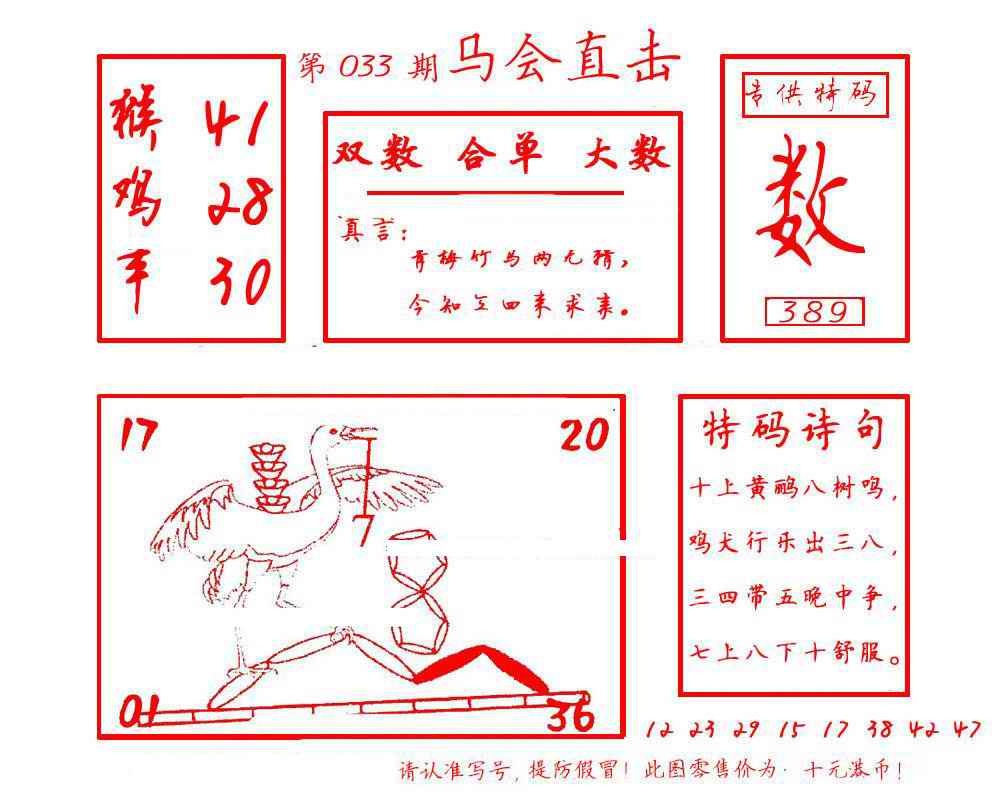 第 033 期 马会直击
猴 41
鸡 28
羊 30
双数 合单 大数
真言：
青梅竹马两无猜，
今知三四来求亲。
专供特码
数
389
17
20
7
01
36
特码诗句
十上黄鹂八树鸣，
鸡犬行乐出三八，
三四带五晚中争，
七上八下十舒服。
12 23 29 15 17 38 42 47
请认准写号，提防假冒！此图零售价为·十元港币！